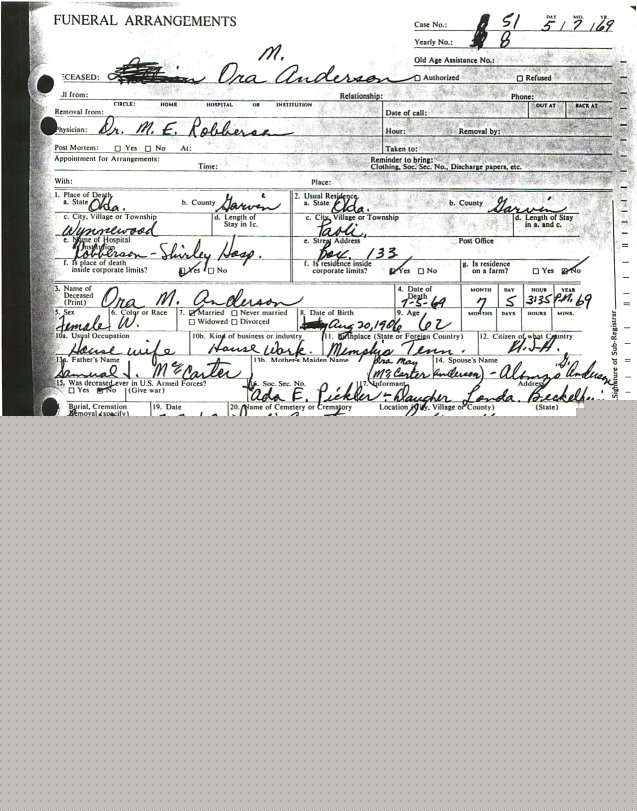 FUNERAL ARRANGEMENTS
Case No.: 51 DAY 5 MO. 7 YR. 69
Yearly No.: 8
M.
Old Age Assistance No.:
ECEASED: Ora Anderson ☐ Authorized ☐ Refused
ll from: Relationship: Phone:
CIRCLE: HOME HOSPITAL OR INSTITUTION OUT AT BACK AT
Removal from: Date of call:
hysician: Dr. M. E. Robberson Hour: Removal by:
Post Mortem: ☐ Yes ☐ No At: Taken to:
Appointment for Arrangements: Reminder to bring:
Time: Clothing, Soc. Sec. No., Discharge papers, etc.
With: Place:
1. Place of Death 2. Usual Residence
a. State Okla. b. County Garvin a. State Okla. b. County Garvin
c. City, Village or Township d. Length of Stay in 1c. c. City, Village or Township d. Length of Stay in a. and c.
Wynnewood Paoli,
e. Name of Hospital Institution e. Street Address Post Office
Robberson - Shirley Hosp. Box. 133
f. Is place of death inside corporate limits? ☑ Yes ☐ No f. Is residence inside corporate limits? ☑ Yes ☐ No g. Is residence on a farm? ☐ Yes ☑ No
3. Name of Deceased (Print) Ora M. Anderson 4. Date of Death 7-5-69 MONTH 7 DAY 5 HOUR 3:35 P.M. YEAR 69
5. Sex 6. Color or Race 7. ☑ Married ☐ Never married 8. Date of Birth 9. Age MONTHS DAYS HOURS MINS.
Female W. ☐ Widowed ☐ Divorced Aug 20, 1906 62
10a. Usual Occupation 10b. Kind of business or industry 11. Birthplace (State or Foreign Country) 12. Citizen of what Country
House wife House Work. Memphis Tenn. U.S.A.
13a. Father's Name 13b. Mother's Maiden Name 14. Spouse's Name
Samuel J. McCarter Ora May (McCarter Anderson) - Alonzo G. Anderson
15. Was deceased ever in U.S. Armed Forces? 16. Soc. Sec. No. 17. Informant Address
☐ Yes ☑ No (Give war) Ada E. Pickler - Daugher
Burial, Cremation Removal (specify) 19. Date 20. Name of Cemetery or Crematory Location (City, Village or County) (State)
Signature of Sub-Registrar